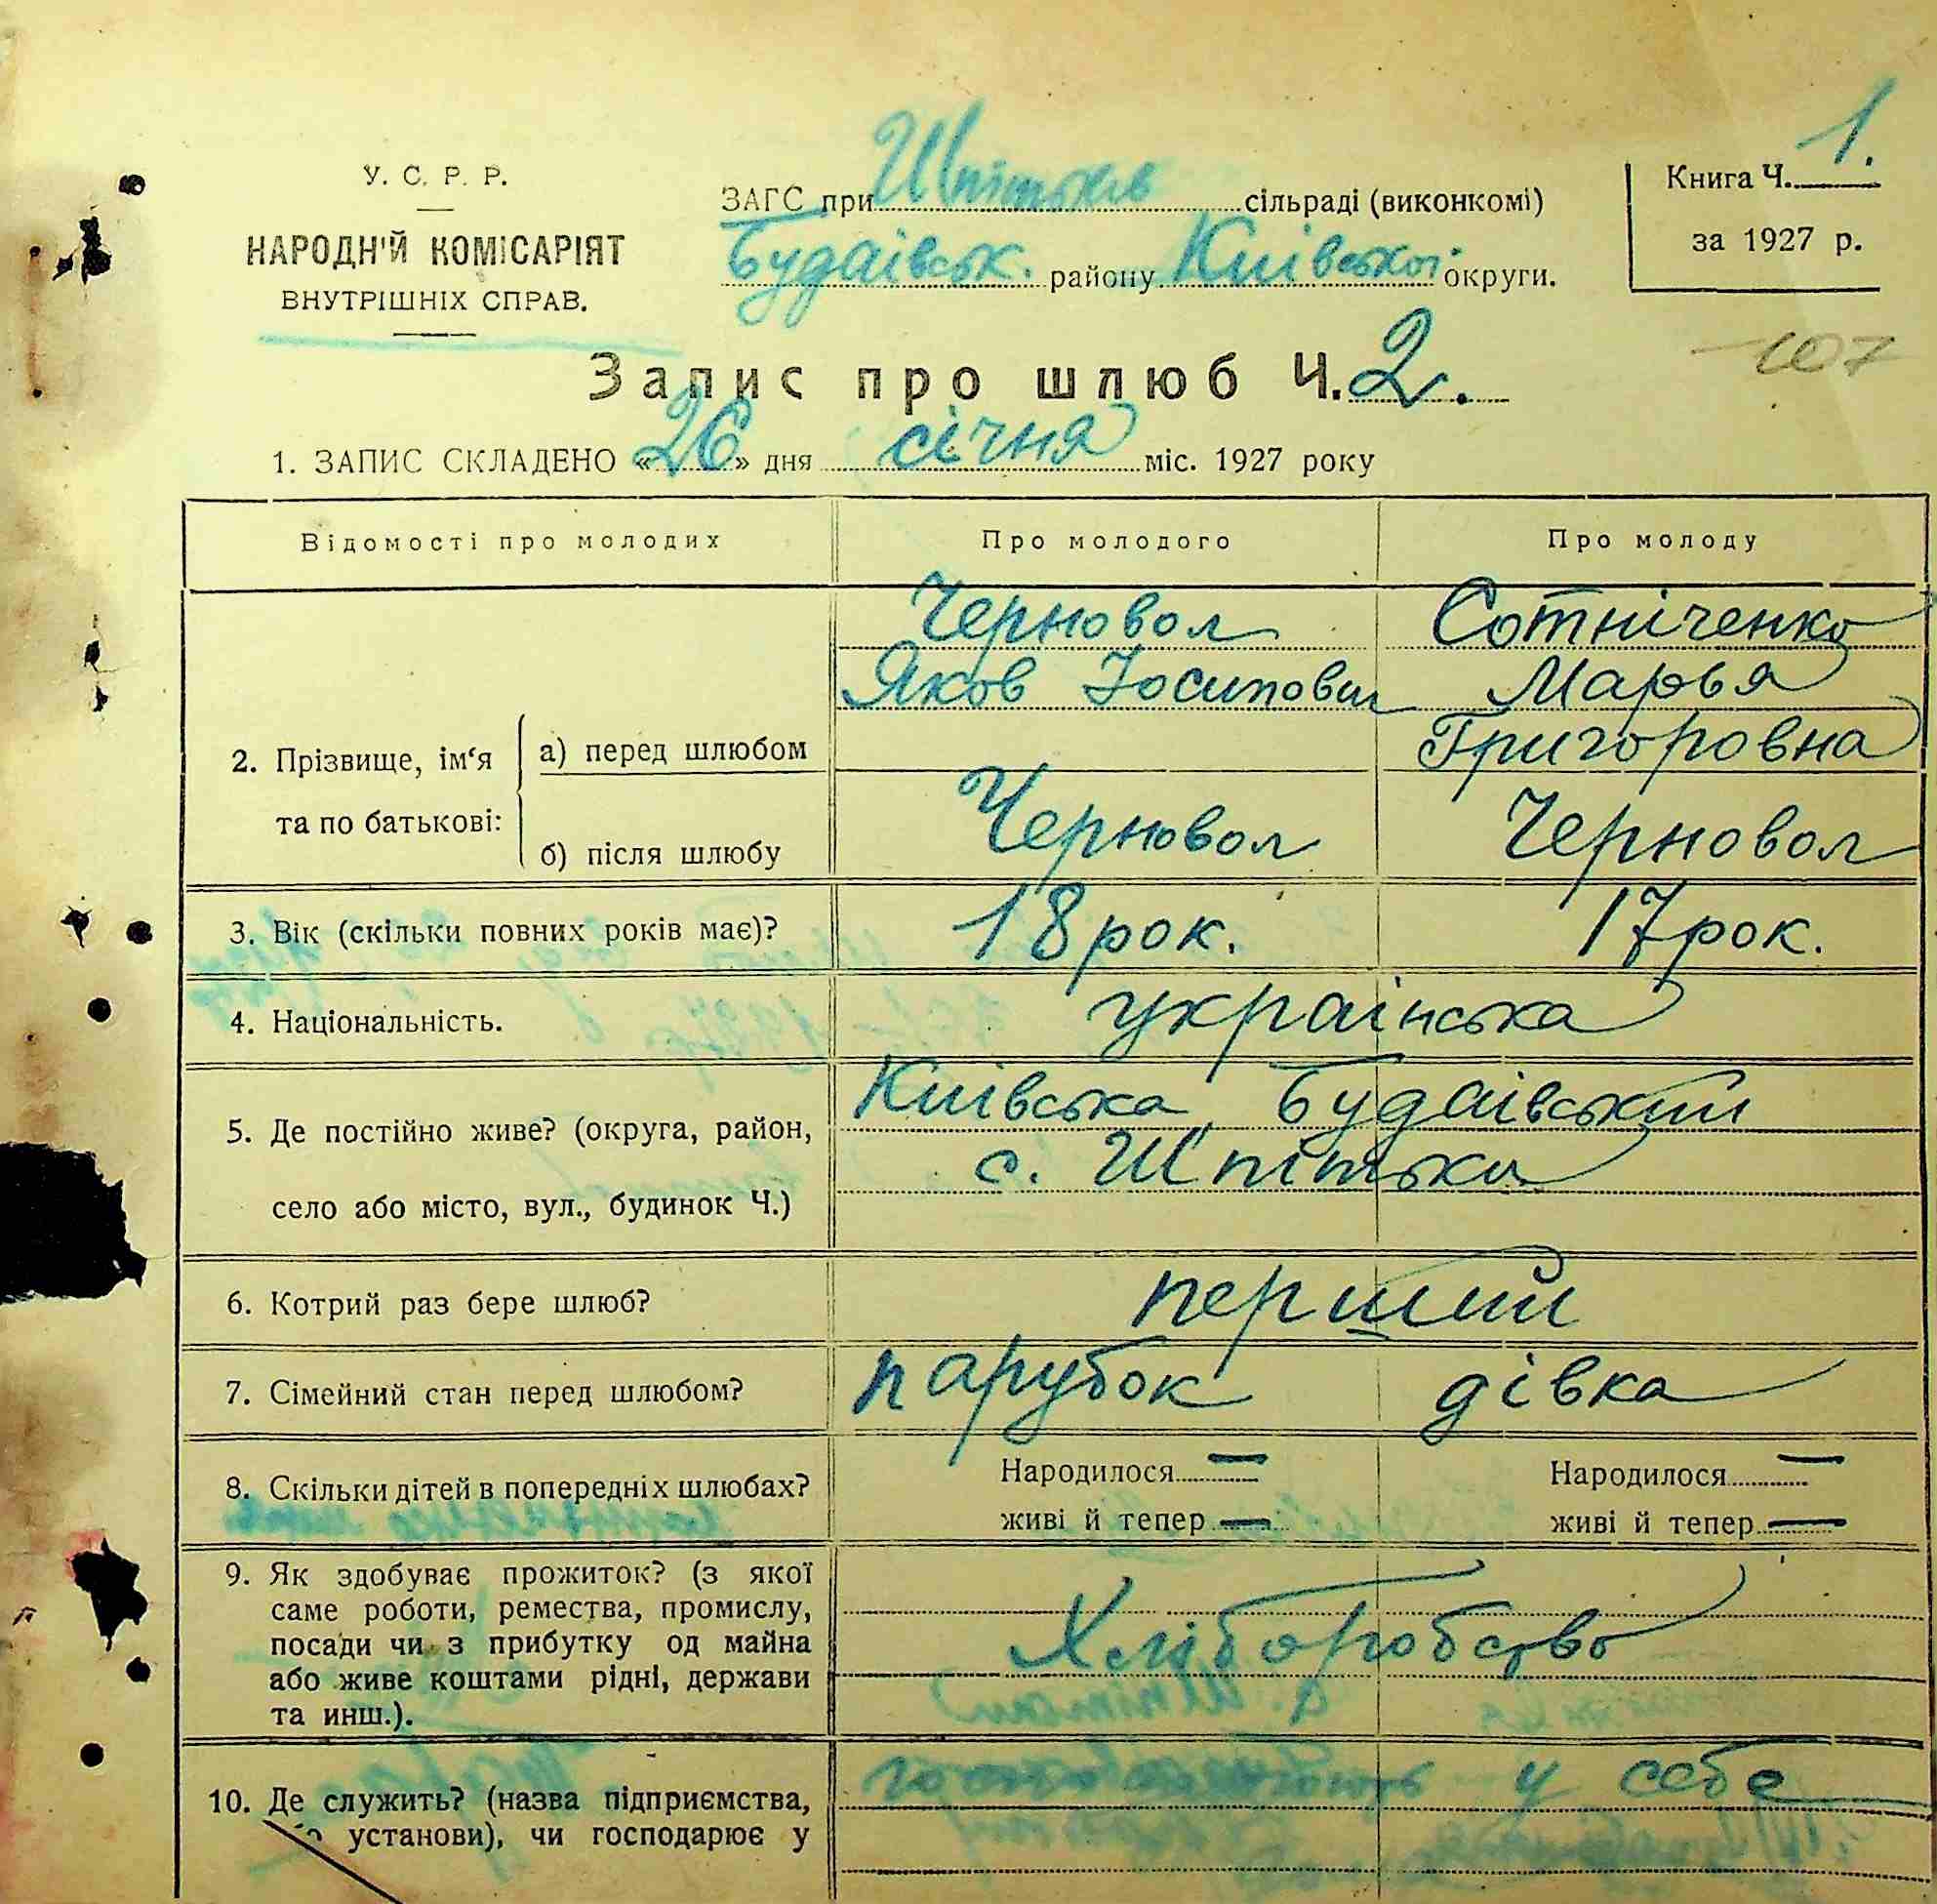 Книга Ч. 1.
за 1927 р.
У. С. Р. Р.
НАРОДНІЙ КОМІСАРІЯТ
ВНУТРІШНІХ СПРАВ.
ЗАГС при Шпітьків сільраді (виконкомі)
Будаівськ. району Киівськоі округи.
107
Запис про шлюб Ч. 2.
1. ЗАПИС СКЛАДЕНО «26» дня січня міс. 1927 року
Відомості про молодих Про молодого Про молоду
Черновол Сотніченко
Яков Іосипович Марья
2. Прізвище, ім‘я а) перед шлюбом Григоровна
та по батькові: б) після шлюбу Черновол Черновол
3. Вік (скільки повних років має)? 18 рок. 17 рок.
4. Національність. українська
Киівська Будаівський
5. Де постійно живе? (округа, район, с. Шпітьки
село або місто, вул., будинок Ч.)
6. Котрий раз бере шлюб? перший
7. Сімейний стан перед шлюбом? парубок дівка
8. Скільки дітей в попередніх шлюбах? Народилося — Народилося —
живі й тепер — живі й тепер —
9. Як здобуває прожиток? (з якої
саме роботи, ремества, промислу, Хліборобство
посади чи з прибутку од майна
або живе коштами рідні, держави
та инш.).
10. Де служить? (назва підприємства, у себе
установи), чи господарює у